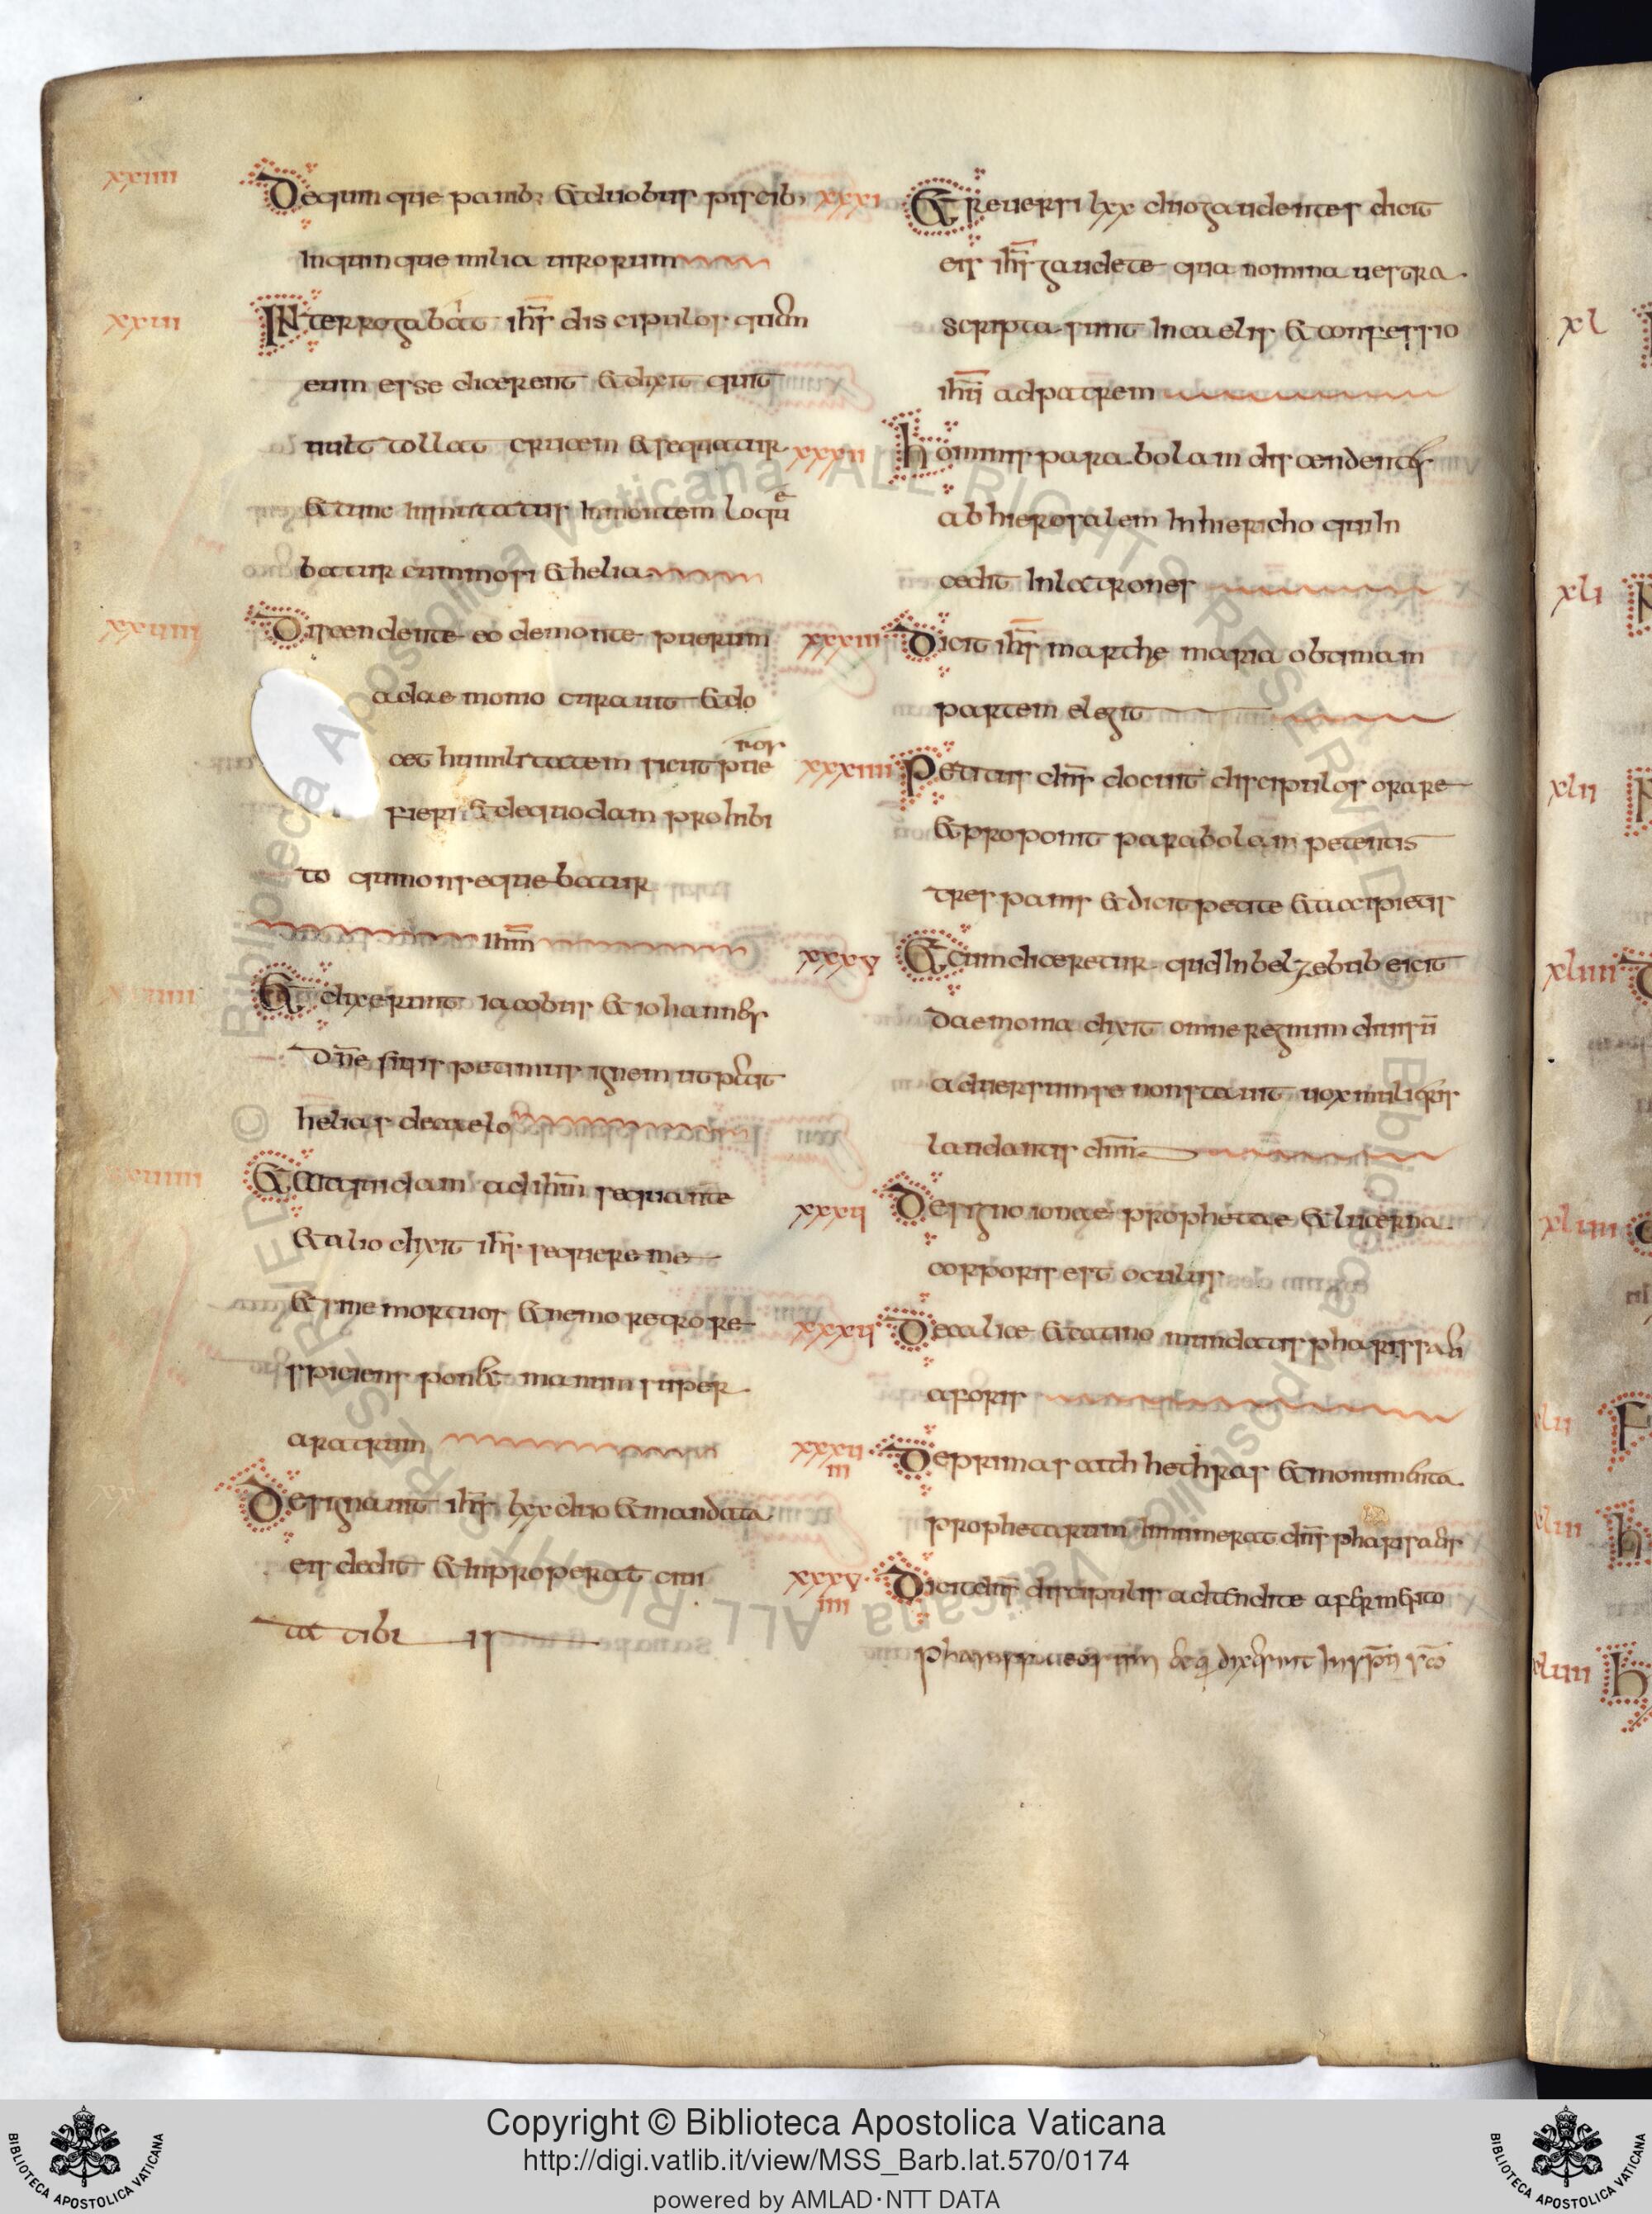 xxiiii
Dequinque panib; &duobus piscib;
Inquinque milia uirorum
xxui
INterrogabat ihs discipulos quem
eum esse dicerent &dixit quit
uult tollat crucem &sequatur
&tunc Inmutatur Inmontem loque
batur cummosi &helia
xxuiii
Discendente eo demonte puerum
adaemonio curauit &do
cet humilitatem sicut pue
ros
fieri &dequodam prohibi
to quinonsequebatur
ihm
&dixerunt iacobus &iohannes
dne siuis petimus ignem ut
helias decaelo
xxuiiii
adihm sequante
&alio dixit ihs sequere me
&sine mortuos &nemo retro re
spiciens ponens manum super
aratrum
Designauit ihs lxx duo &mandata
eis dedit &Inproperat ciui
tatibus
xxxi
&reuersi lxx duo gaudentes dicit
eis ihs gaudete quia nomina uestra
scripta sunt Incaelis &confessio
ihu adpatrem
xxxii
hominis parabolam discendentes
ab hierosalem Inhiericho quiIn
cedit Inlatrones
xxxiii
Dicit ihs marthe maria obtimam
partem elegit
xxxiiii
Petitus dns docuit discipulos orare
&proponit parabolam petentis
tres panis &dicit petite &accipietis
xxxv
&cumdiceretur quid Inbelzebub eicit
daemonia dixit omne regnum diuisu
aduersumse nonstauit uox mulieris
laudantis dnm
xxxui
Designo ionae prophetae &lucerna
corporis est oculus
xxxui
Decalice &catino mundatis pharissaei
aforis
xxxui
iii
Deprimas cathhethras &monumenta
prophetarum Innumerat dns pharisaeis
xxxv
iiii
Dicit dns discipulis adtendite afermento
phariseorum
xl
xli
xlii
xliii
xluii
xluiii
Copyright © Biblioteca Apostolica Vaticana
http://digi.vatlib.it/view/MSS_Barb.lat.570/0174
powered by AMLAD·NTT DATA
BIBLIOTECA APOSTOLICA VATICANA
BIBLIOTECA APOSTOLICA VATICANA